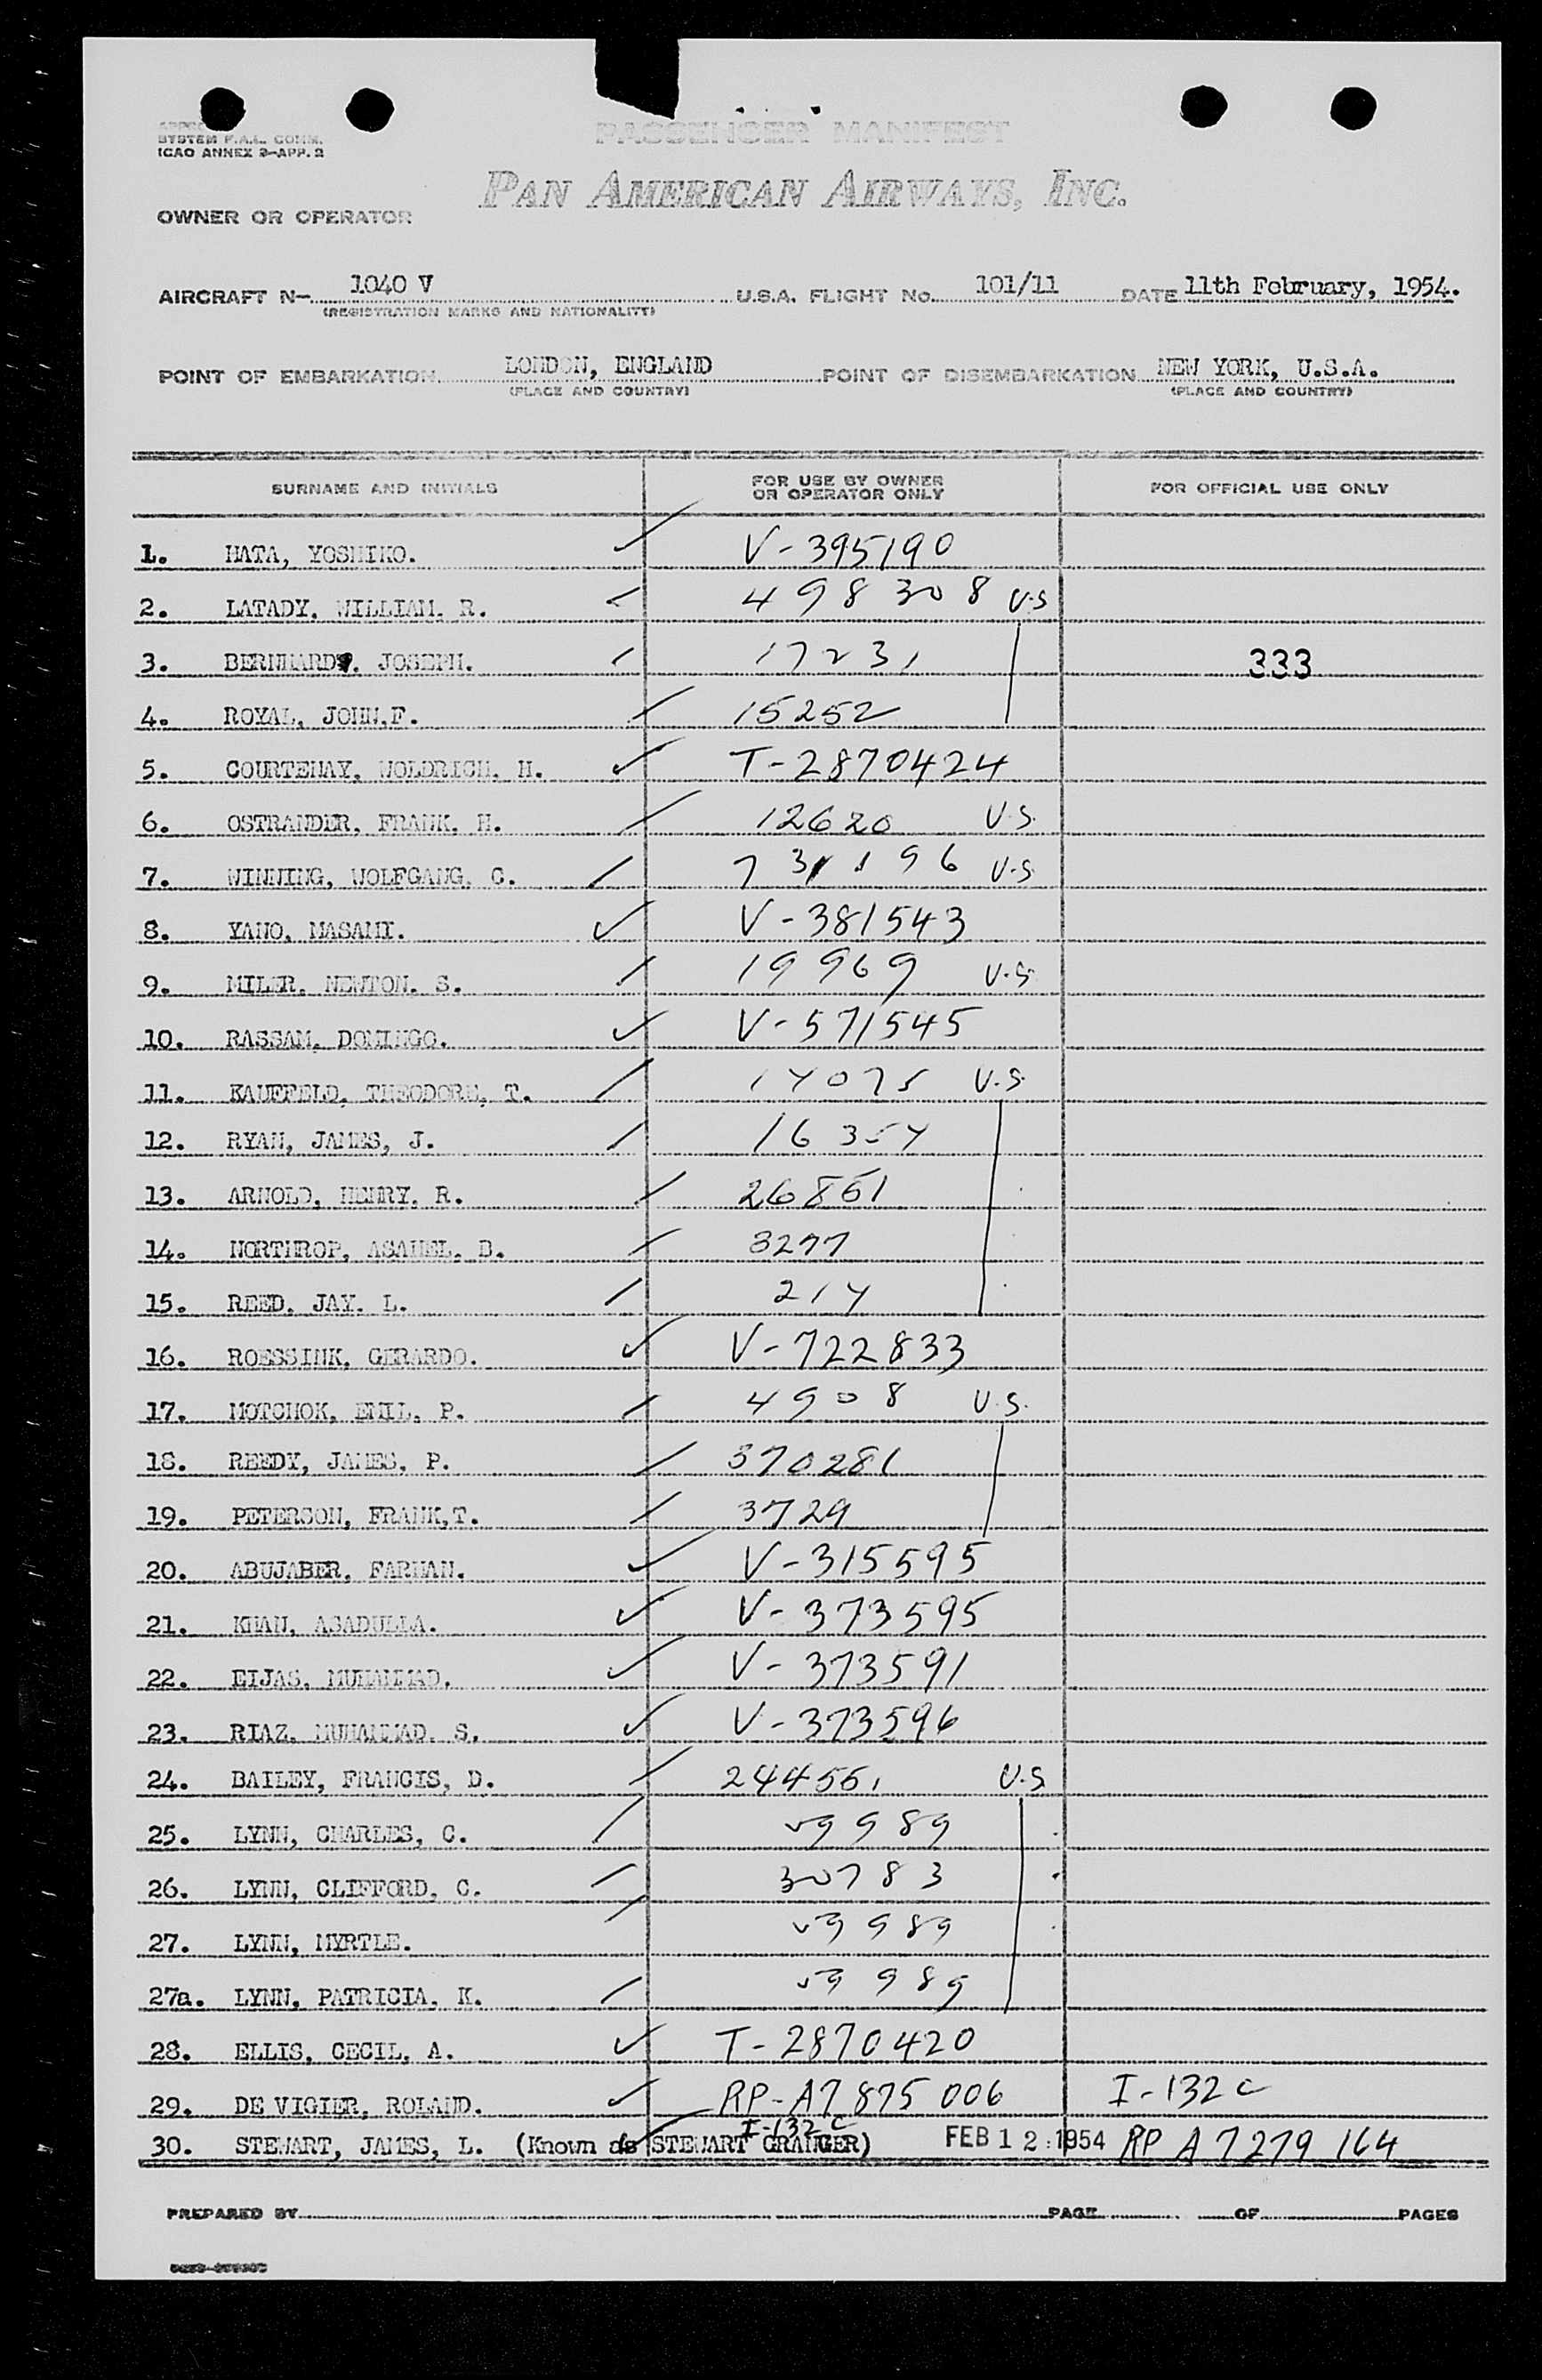 SYSTEM F.A.L. COMM.
ICAO ANNEX 9-APP. 2
PASSENGER MANIFEST
PAN AMERICAN AIRWAYS, INC.
OWNER OR OPERATOR
AIRCRAFT N- 1040 V U.S.A. FLIGHT No. 101/11 DATE 11th February, 1954.
(REGISTRATION MARKS AND NATIONALITY)
POINT OF EMBARKATION LONDON, ENGLAND POINT OF DISEMBARKATION NEW YORK, U.S.A.
(PLACE AND COUNTRY) (PLACE AND COUNTRY)
SURNAME AND INITIALS FOR USE BY OWNER OR OPERATOR ONLY FOR OFFICIAL USE ONLY
1. HATA, YOSHIKO. V-395190
2. LATADY, WILLIAM. R. 498308 U.S
3. BERNHARD, JOSEPH. 17231 333
4. ROYAL, JOHN.F. 15252
5. COURTENAY, WOLDRICH. H. T-2870424
6. OSTRANDER, FRANK. H. 12620 U.S.
7. WINNING, WOLFGANG. C. U.S.
8. YANO, MASAMI. V-381543
9. MILER, NEWTON. S. 19969 U.S.
10. RASSAM, DOMINGO. V-571545
11. KAUFFELD, THEODORE, T. 14075 U.S.
12. RYAN, JAMES, J. 16354
13. ARNOLD, HENRY, R. 26861
14. NORTHROP, ASAHEL. B. 3277
15. REED, JAY. L. 214
16. ROESSINK, GERARDO. V-722833
17. MOTCHOK, EMIL, P. 4908 U.S.
18. REEDY, JAMES, P. 370281
19. PETERSON, FRANK,T. 3729
20. ABUJABER, FARHAN. V-315595
21. KHAN, ASADULLA. V-373595
22. EIJAS, MUHAMMAD. V-373591
23. RIAZ, MUHAMMAD. S. V-373596
24. BAILEY, FRANCIS, D. 244561 U.S
25. LYNN, CHARLES, C. 59989
26. LYNN, CLIFFORD, C. 30783
27. LYNN, MYRTLE. 59989
27a. LYNN, PATRICIA. K. 59989
28. ELLIS, CECIL, A. T-2870420
29. DE VIGIER, ROLAND. RP-A7875006 I-132C
I-132C
30. STEWART, JAMES, L. (Known as STEWART GRANGER) FEB 12 1954 RP A7279164
PREPARED BY PAGE OF PAGES